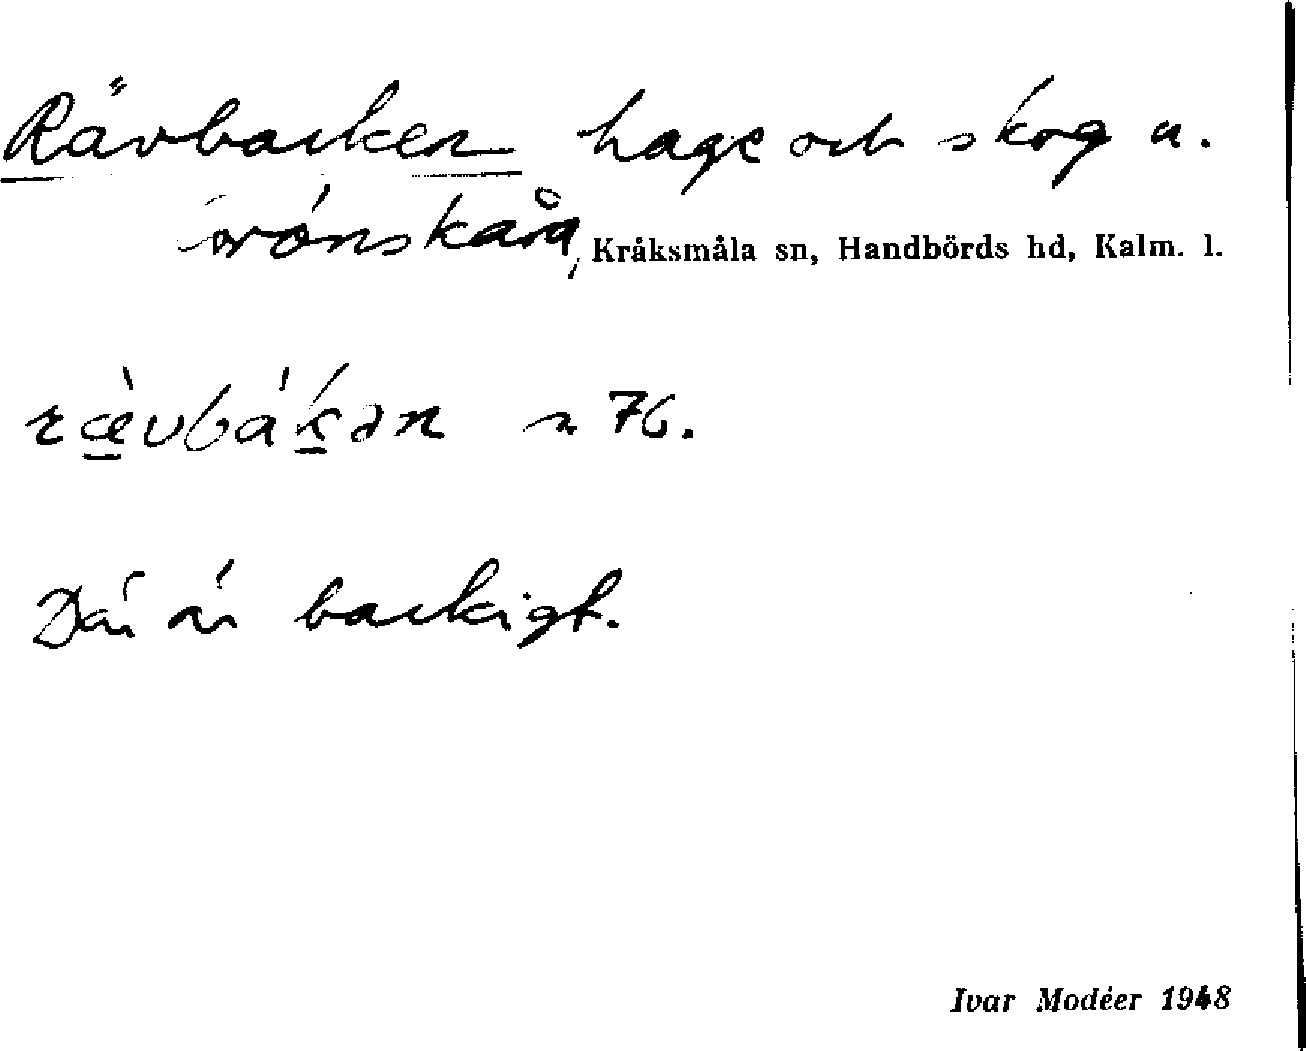 Rävbacken hage och skog u.
Kråksmåla sn, Handbörds hd, Kalm. l.
ræ̀vbákən n 76.
Där är backigt.
Ivar Modéer 1948